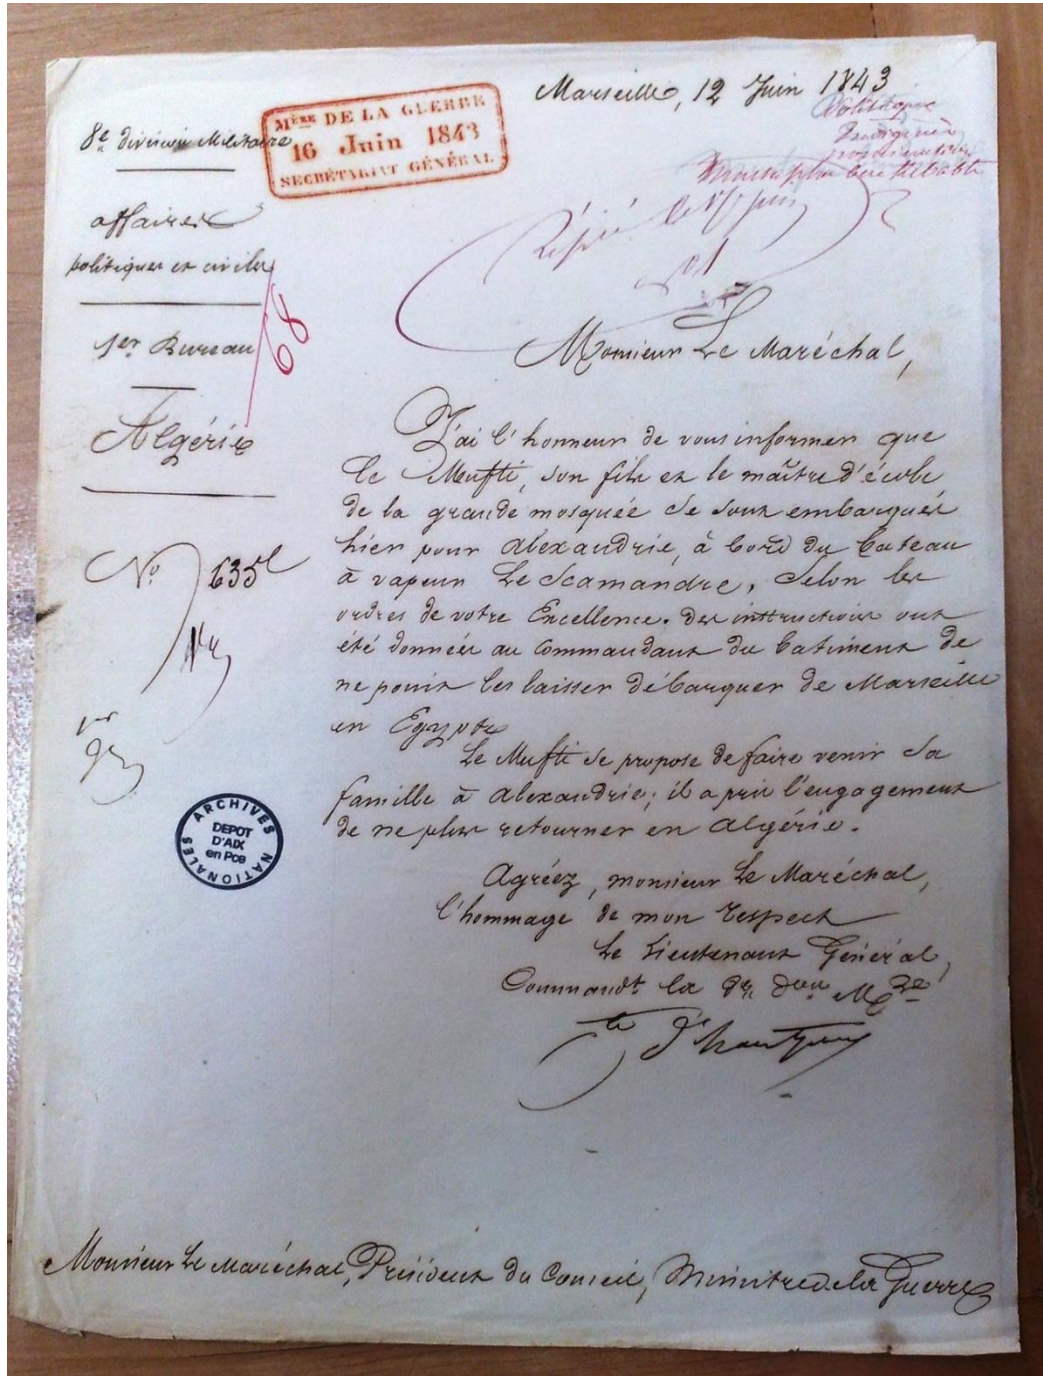 Marseille, 12 Juin 1843
Mère DE LA GUERRE
16 Juin 1843
SECRÉTARIAT GÉNÉRAL
8e division Militaire
affaires
politiques et civiles
68
1er Bureau
Algérie
No 635
ARCHIVES NATIONALES
DEPOT
D'AIX
en Pce
Politique
Monsieur Le Maréchal,
J'ai l'honneur de vous informer que
le Mufti, son fils et le maître d'école
de la grande mosquée se sont embarqués
hier pour Alexandrie, à bord du bateau
à vapeur Le Scamandre, selon les
ordres de votre Excellence. des instructions ont
été données au Commandant du batiment de
ne point les laisser débarquer de Marseille
en Egypte
Le Mufti se propose de faire venir sa
famille à Alexandrie; il a pris l'engagement
de ne plus retourner en Algérie.
Agréez, monsieur Le Maréchal,
l'hommage de mon respect
Le Lieutenant Général,
Commandt la 8e Don Mre
d'hautpoul
Monsieur Le Maréchal, Président du Conseil, Ministre de la Guerre